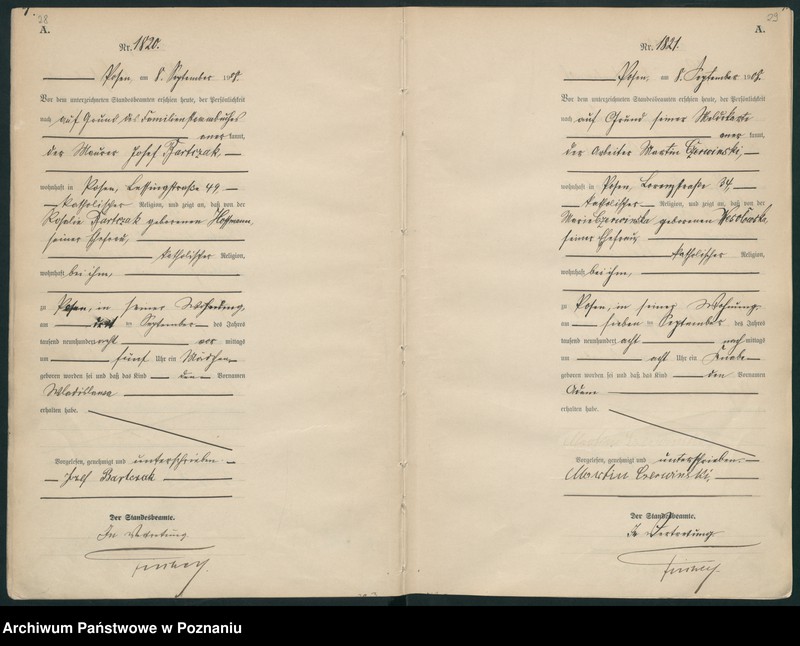 28
A.
Nr. 1820.
Posen, am 8. September 1908.
Vor dem unterzeichneten Standesbeamten erschien heute, der Persönlichkeit
nach auf Grund des Familienstammbuches
aner kannt,
der Maurer Josef Bartczak,
wohnhaft in Posen, Lessingstraße 49
katholischer Religion, und zeigt an, daß von der
Rosalie Bartczak geborenen Hoffmann,
seiner Ehefrau,
katholischer Religion,
wohnhaft bei ihm,
zu Posen, in seiner Wohnung,
am September des Jahres
tausend neunhundert acht vor mittags
um fünf Uhr ein Mädchen
geboren worden sei und daß das Kind den Vornamen
Wladislawa
erhalten habe.
Vorgelesen, genehmigt und unterschrieben
Josef Bartczak
Der Standesbeamte.
In Vertretung.
29
A.
Nr. 1821.
Posen, am 8. September 1908.
Vor dem unterzeichneten Standesbeamten erschien heute, der Persönlichkeit
nach auf Grund seiner Meldekarte
aner kannt,
der Arbeiter Martin Czerwinski,
wohnhaft in Posen, 34,
katholischer Religion, und zeigt an, daß von der
Marie Czerwinska geborenen
seiner Ehefrau
katholischer Religion,
wohnhaft bei ihm,
zu Posen, in seiner Wohnung,
am sieben ten September des Jahres
tausend neunhundert acht nach mittags
um acht Uhr ein Knabe
geboren worden sei und daß das Kind den Vornamen
Adam
erhalten habe.
Vorgelesen, genehmigt und unterschrieben.
Martin Czerwinski,
Der Standesbeamte.
In Vertretung
Archiwum Państwowe w Poznaniu